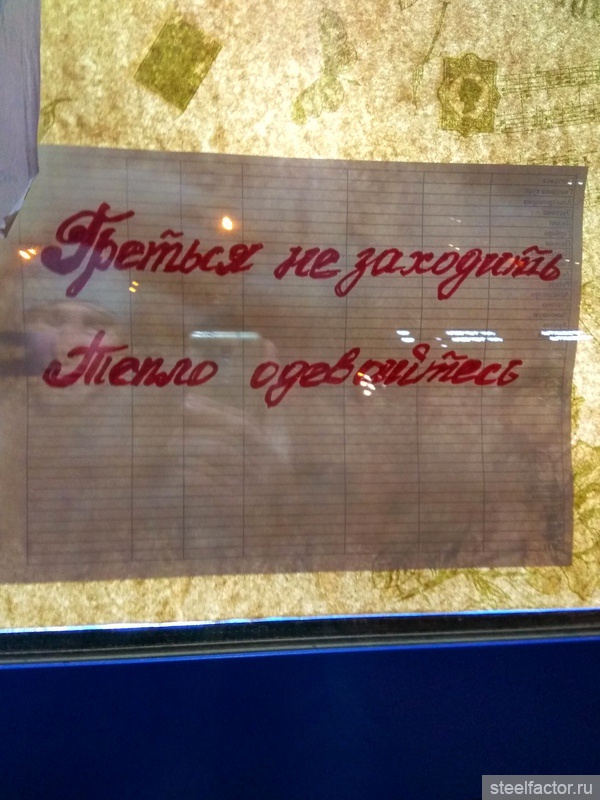 Греться не заходить
Тепло одевайтесь
steelfactor.ru